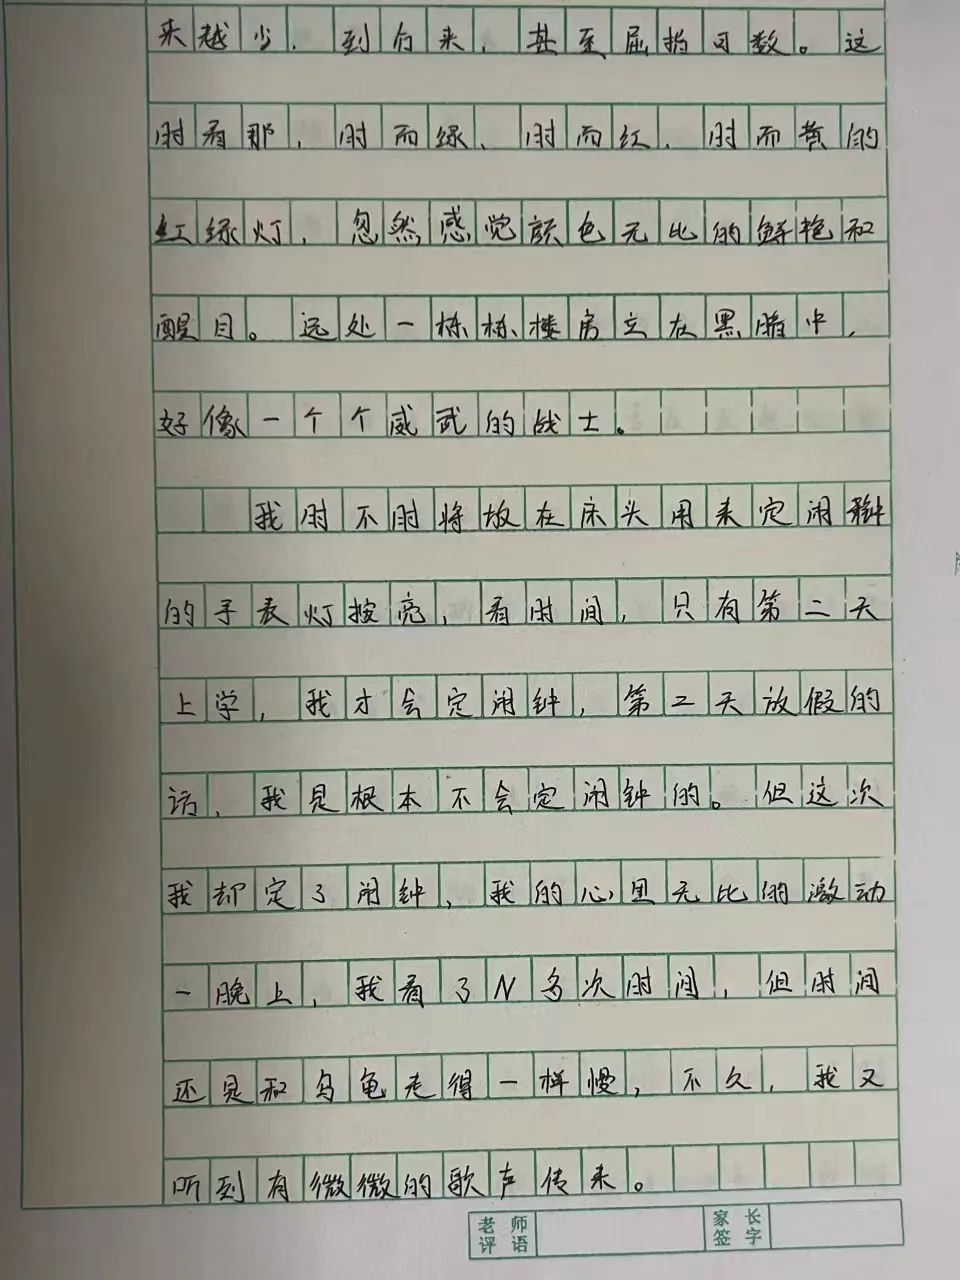 来越少，到后来，甚至屈指可数。这
时看那，时而绿、时而红、时而黄的
红绿灯，忽然感觉颜色无比的鲜艳和
醒目。远处一栋栋楼房立在黑暗中，
好像一个个威武的战士。
我时不时将放在床头用来定闹钟
的手表灯按亮，看时间，只有第二天
上学，我才会定闹钟，第二天放假的
话，我是根本不会定闹钟的。但这次
我却定了闹钟，我的心里无比的激动
一晚上，我看了N多次时间，但时间
还是和乌龟走得一样慢，不久，我又
听到有微微的歌声传来。
老师评语
家长签字